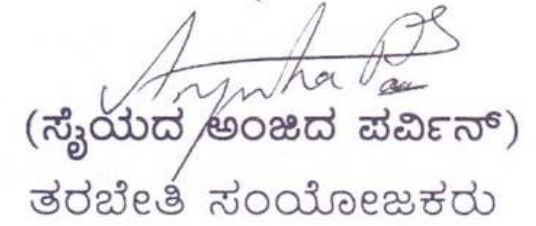 (ಸೈಯದ ಅಂಜಿದ ಪರ್ವಿನ್)
ತರಬೇತಿ ಸಂಯೋಜಕರು